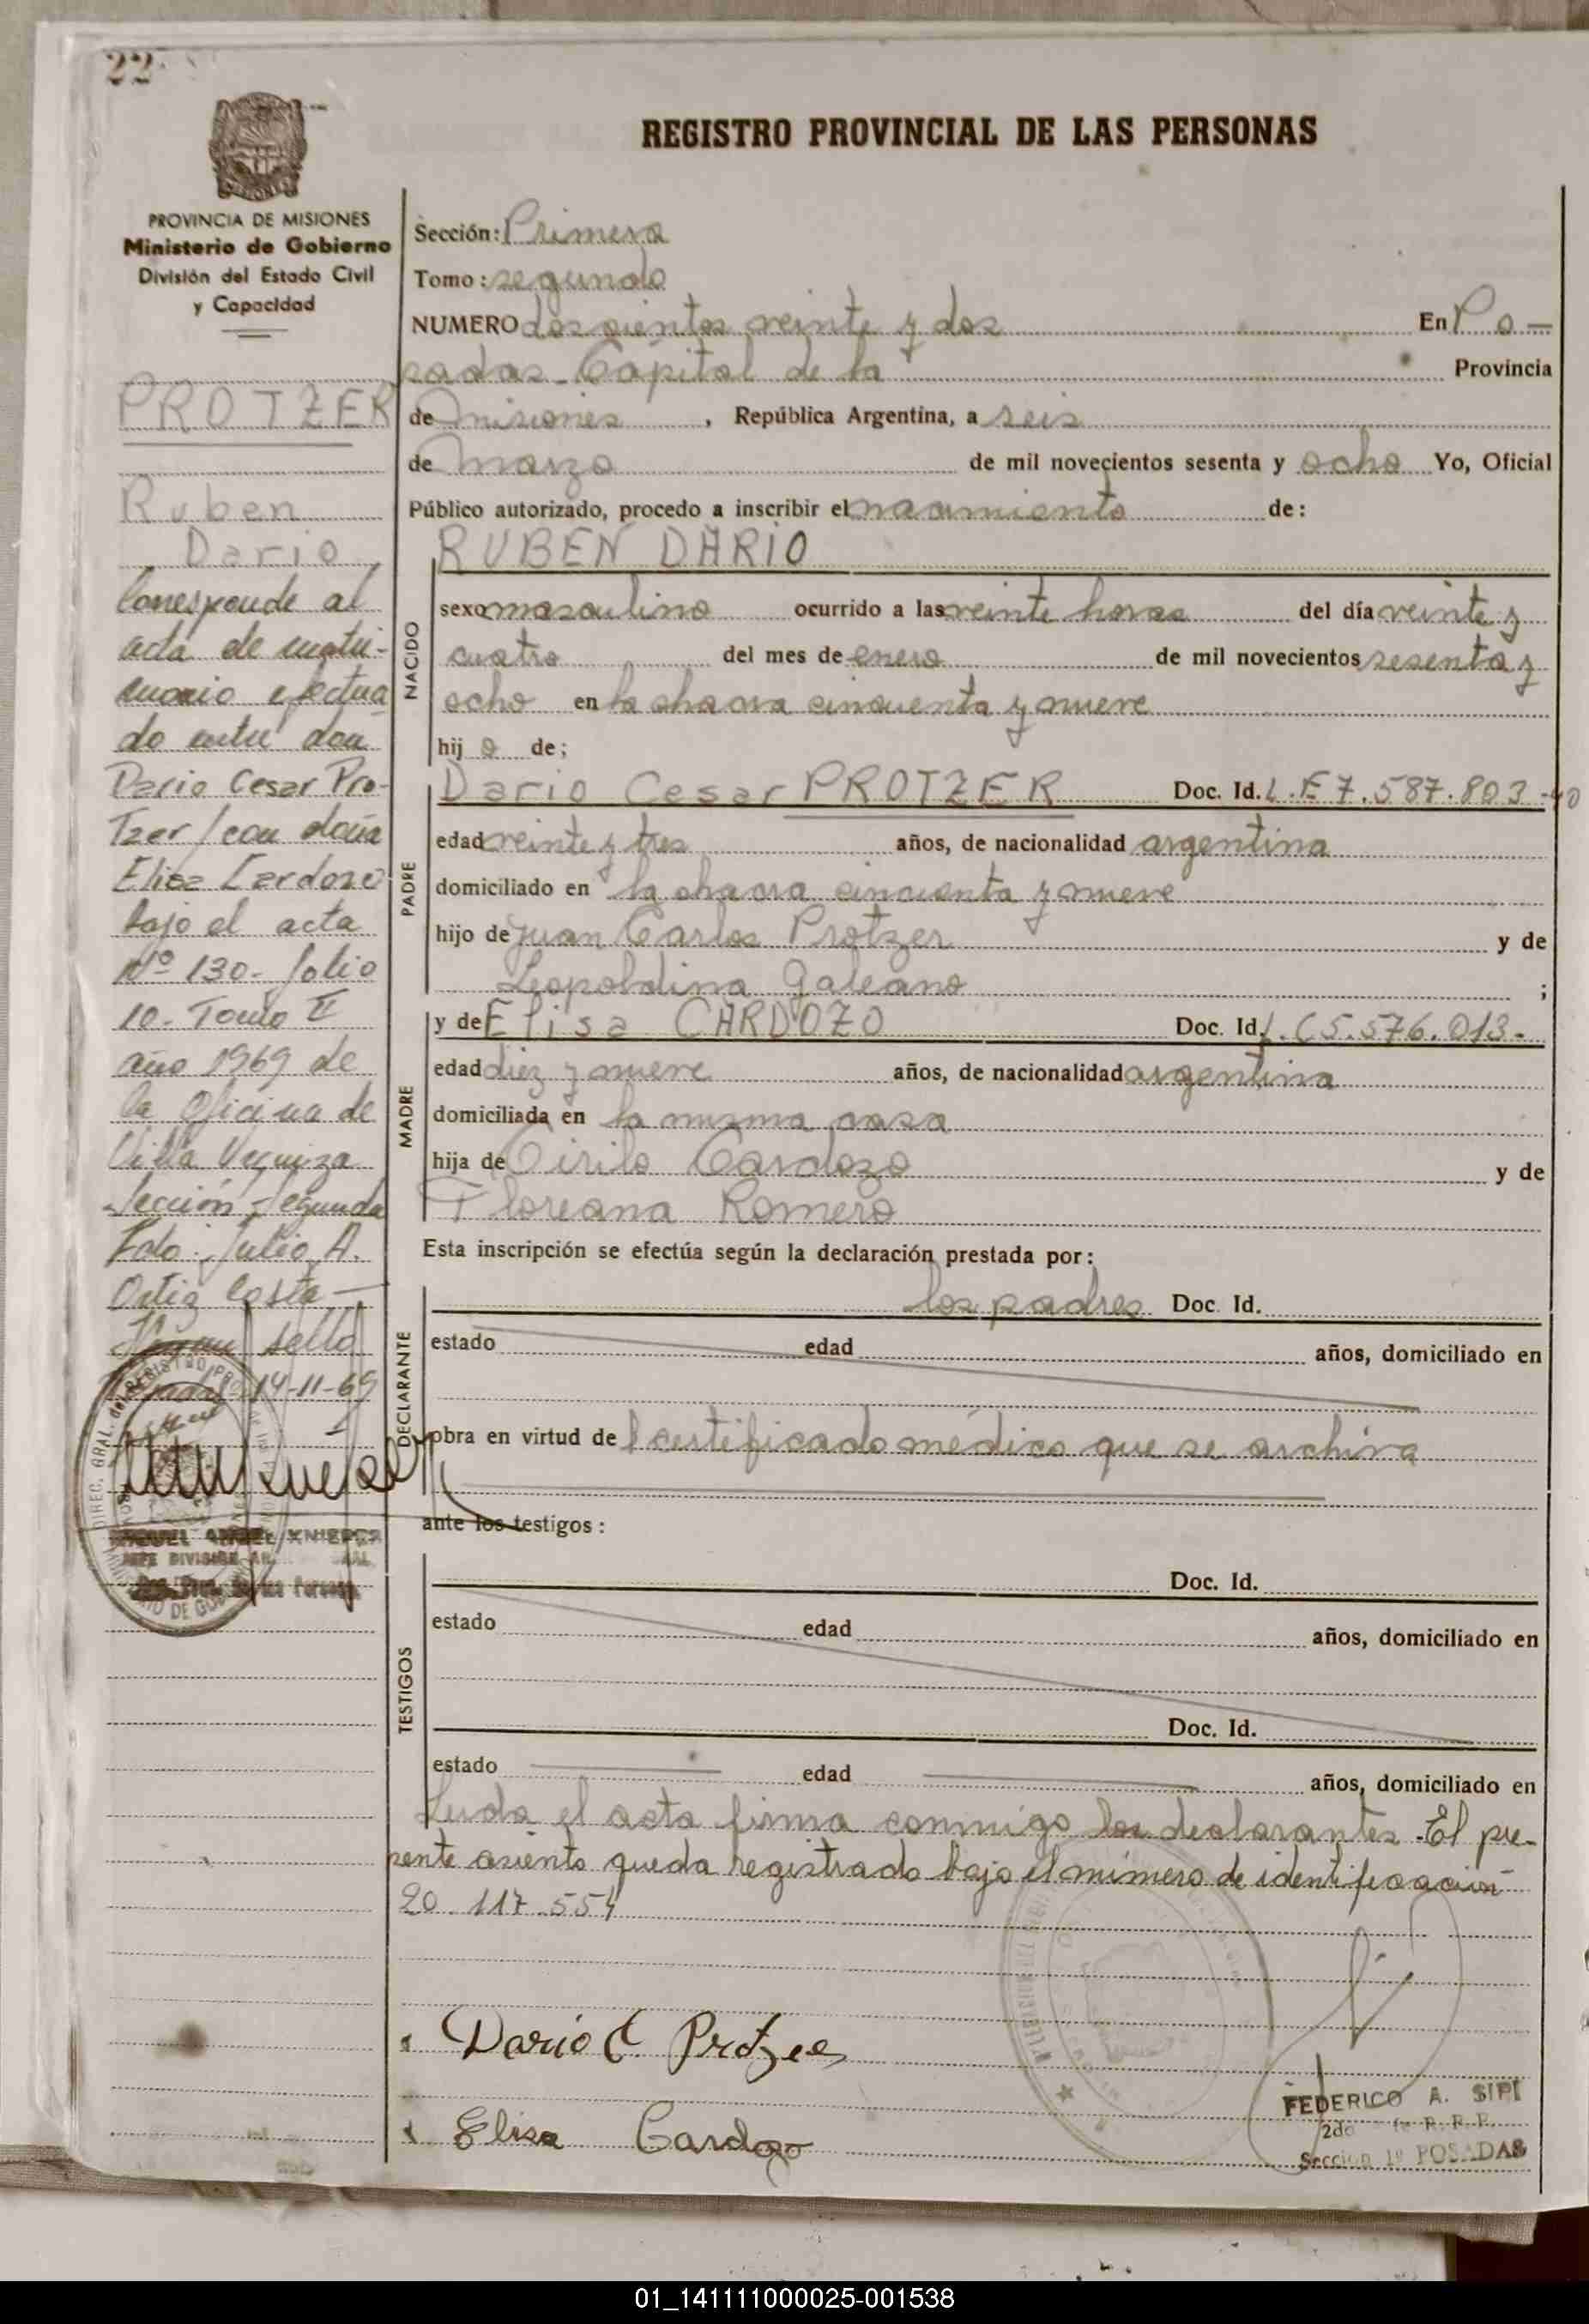 22
REGISTRO PROVINCIAL DE LAS PERSONAS
PROVINCIA DE MISIONES
Ministerio de Gobierno
División del Estado Civil
y Capacidad
PROTZER
Ruben
Dario
Corresponde al
acta de matri-
monio efectua
do entre don
Dario Cesar Pro-
tzer / con doña
Elisa Cardozo
bajo el acta
Nº 130- folio
10- Tomo II
año 1969 de
la Oficina de
Villa Urquiza
Sección Segunda
Fdo: Julio A.
Ortiz Costa
sello
14-11-69
MIGUEL ANGEL
JEFE DIVISION
Sección: Primera
Tomo: segundo
NUMERO dos cientos veinte y dos En Po-
sadas Capital de la Provincia
de misiones, República Argentina, a seis
de marzo de mil novecientos sesenta y ocho Yo, Oficial
Público autorizado, procedo a inscribir el nacimiento de:
NACIDO
RUBEN DARIO
sexo masculino ocurrido a las veinte horas del día veinte y
cuatro del mes de enero de mil novecientos sesenta y
ocho en la chacra cincuenta y nueve
hij o de;
PADRE
Dario Cesar PROTZER Doc. Id. L.E 7.587.803-
edad veinte y tres años, de nacionalidad argentina
domiciliado en la chacra cincuenta y nueve
hijo de Juan Carlos Protzer y de
Leopoldina Galeano ;
MADRE
y de Elisa CARDOZO Doc. Id. L.C 5.576.013-
edad diez y nueve años, de nacionalidad argentina
domiciliada en la misma casa
hija de Cirilo Cardozo y de
Floreana Romero
Esta inscripción se efectúa según la declaración prestada por:
DECLARANTE
los padres Doc. Id.
estado edad años, domiciliado en
obra en virtud del certificado médico que se archiva
ante los testigos:
TESTIGOS
Doc. Id.
estado edad años, domiciliado en
Doc. Id.
estado edad años, domiciliado en
Leida el acta firma conmigo los declarantes. El pre-
sente asiento queda registrado bajo el número de identificación
20.117.554
Dario C. Protzer
Elisa Cardozo
FEDERICO A. SIPI
2do R.P.P.
Sección 1º POSADAS
01_141111000025-001538